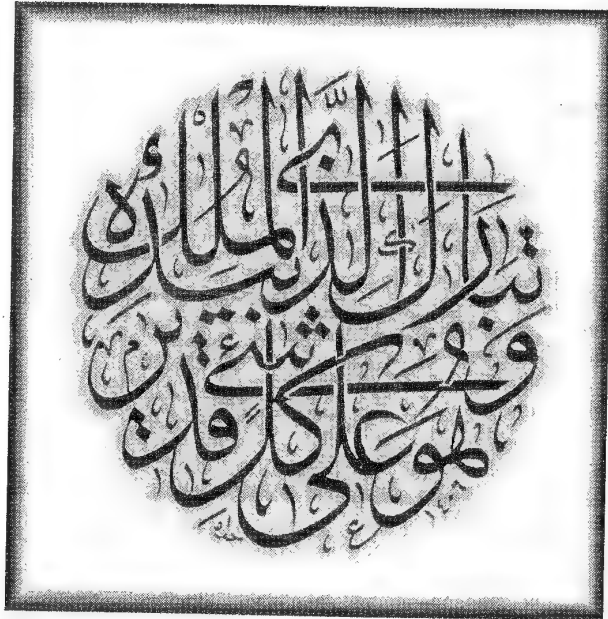 تبارك الذي بيده الملك
وهو على كل شيء قدير